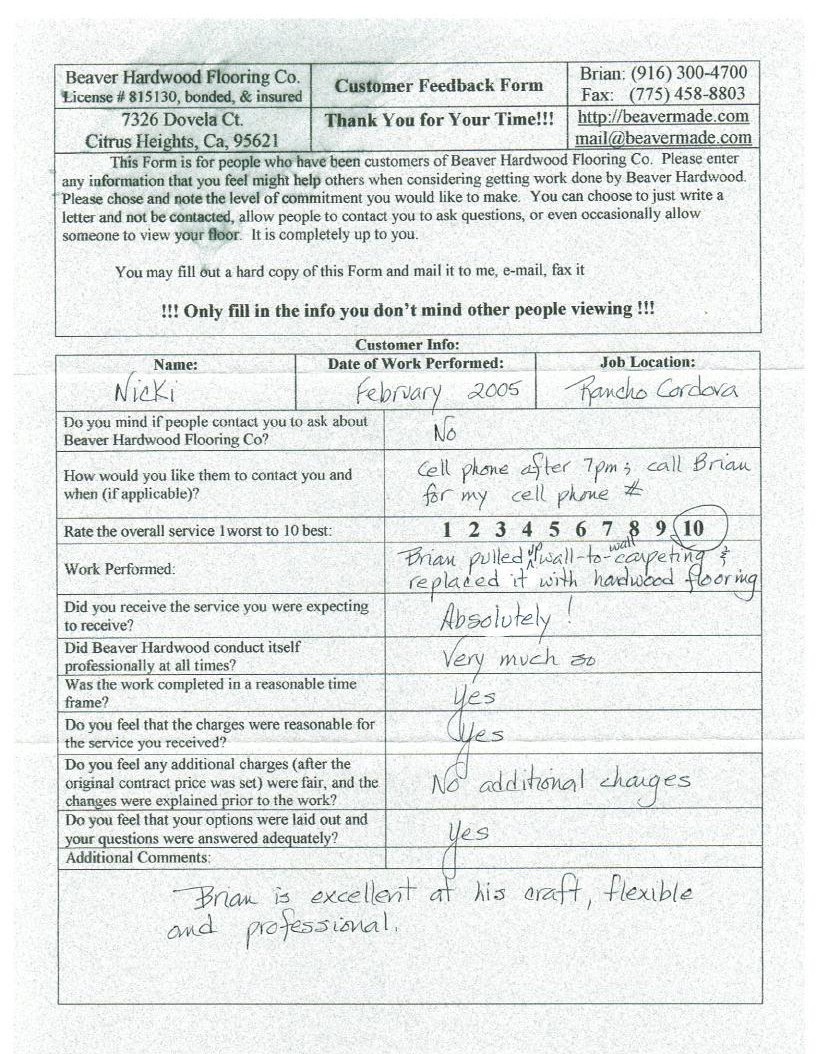 Beaver Hardwood Flooring Co.
License # 815130, bonded, & insured
Customer Feedback Form
Brian: (916) 300-4700
Fax: (775) 458-8803
7326 Dovela Ct.
Citrus Heights, Ca, 95621
Thank You for Your Time!!!
http://beavermade.com
mail@beavermade.com
This Form is for people who have been customers of Beaver Hardwood Flooring Co. Please enter
any information that you feel might help others when considering getting work done by Beaver Hardwood.
Please chose and note the level of commitment you would like to make. You can choose to just write a
letter and not be contacted, allow people to contact you to ask questions, or even occasionally allow
someone to view your floor. It is completely up to you.
You may fill out a hard copy of this Form and mail it to me, e-mail, fax it
!!! Only fill in the info you don't mind other people viewing !!!
Customer Info:
Name:
Date of Work Performed:
Job Location:
Nicki
February 2005
Rancho Cordova
Do you mind if people contact you to ask about
Beaver Hardwood Flooring Co?
No
How would you like them to contact you and
when (if applicable)?
Cell phone after 7pm; call Brian
for my cell phone #
Rate the overall service 1worst to 10 best:
1 2 3 4 5 6 7 8 9 10
Work Performed:
Brian pulled up wall-to-wall carpeting &
replaced it with hardwood flooring
Did you receive the service you were expecting
to receive?
Absolutely!
Did Beaver Hardwood conduct itself
professionally at all times?
Very much so
Was the work completed in a reasonable time
frame?
Yes
Do you feel that the charges were reasonable for
the service you received?
Yes
Do you feel any additional charges (after the
original contract price was set) were fair, and the
changes were explained prior to the work?
No additional charges
Do you feel that your options were laid out and
your questions were answered adequately?
Yes
Additional Comments:
Brian is excellent at his craft, flexible
and professional.